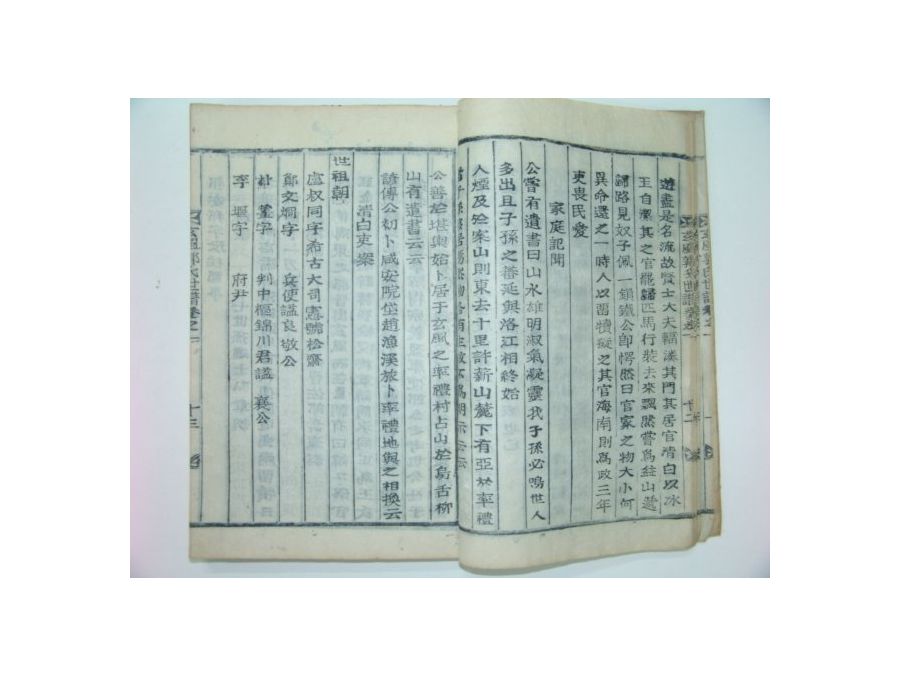 遊盡是名流故賢士大夫輻湊其門其居官淸白以冰
玉自潔其之官罷歸匹馬行裝去來飄然嘗爲釜山還
歸路見奴子佩一鎖鐵公卽愕然曰官家之物大小何
異命還之一時人以留犢擬之其官海南則爲政三年
吏畏民愛
家庭記聞
公嘗有遺書曰山水雄明淑氣凝靈我子孫必鳴世人
多出且子孫之番延與洛江相終始
人煙及於案山則東去十里許新山麓下有亞於率禮
公善於堪輿始卜居于玄風之率禮村占山於烏舌柳
山有遺書云云
諺傳公初卜咸安院垈趙漁溪旅卜率禮地與之相換云
淸白吏案
世祖朝
盧叔同字希古大司憲號松齋
鄭文炯字 兵使諡良敬公
朴薑字 判中樞錦川君諡 襄公
李堰字 府尹
玄風郭氏世譜卷之一 十三
玄風郭氏世譜卷之一 十二